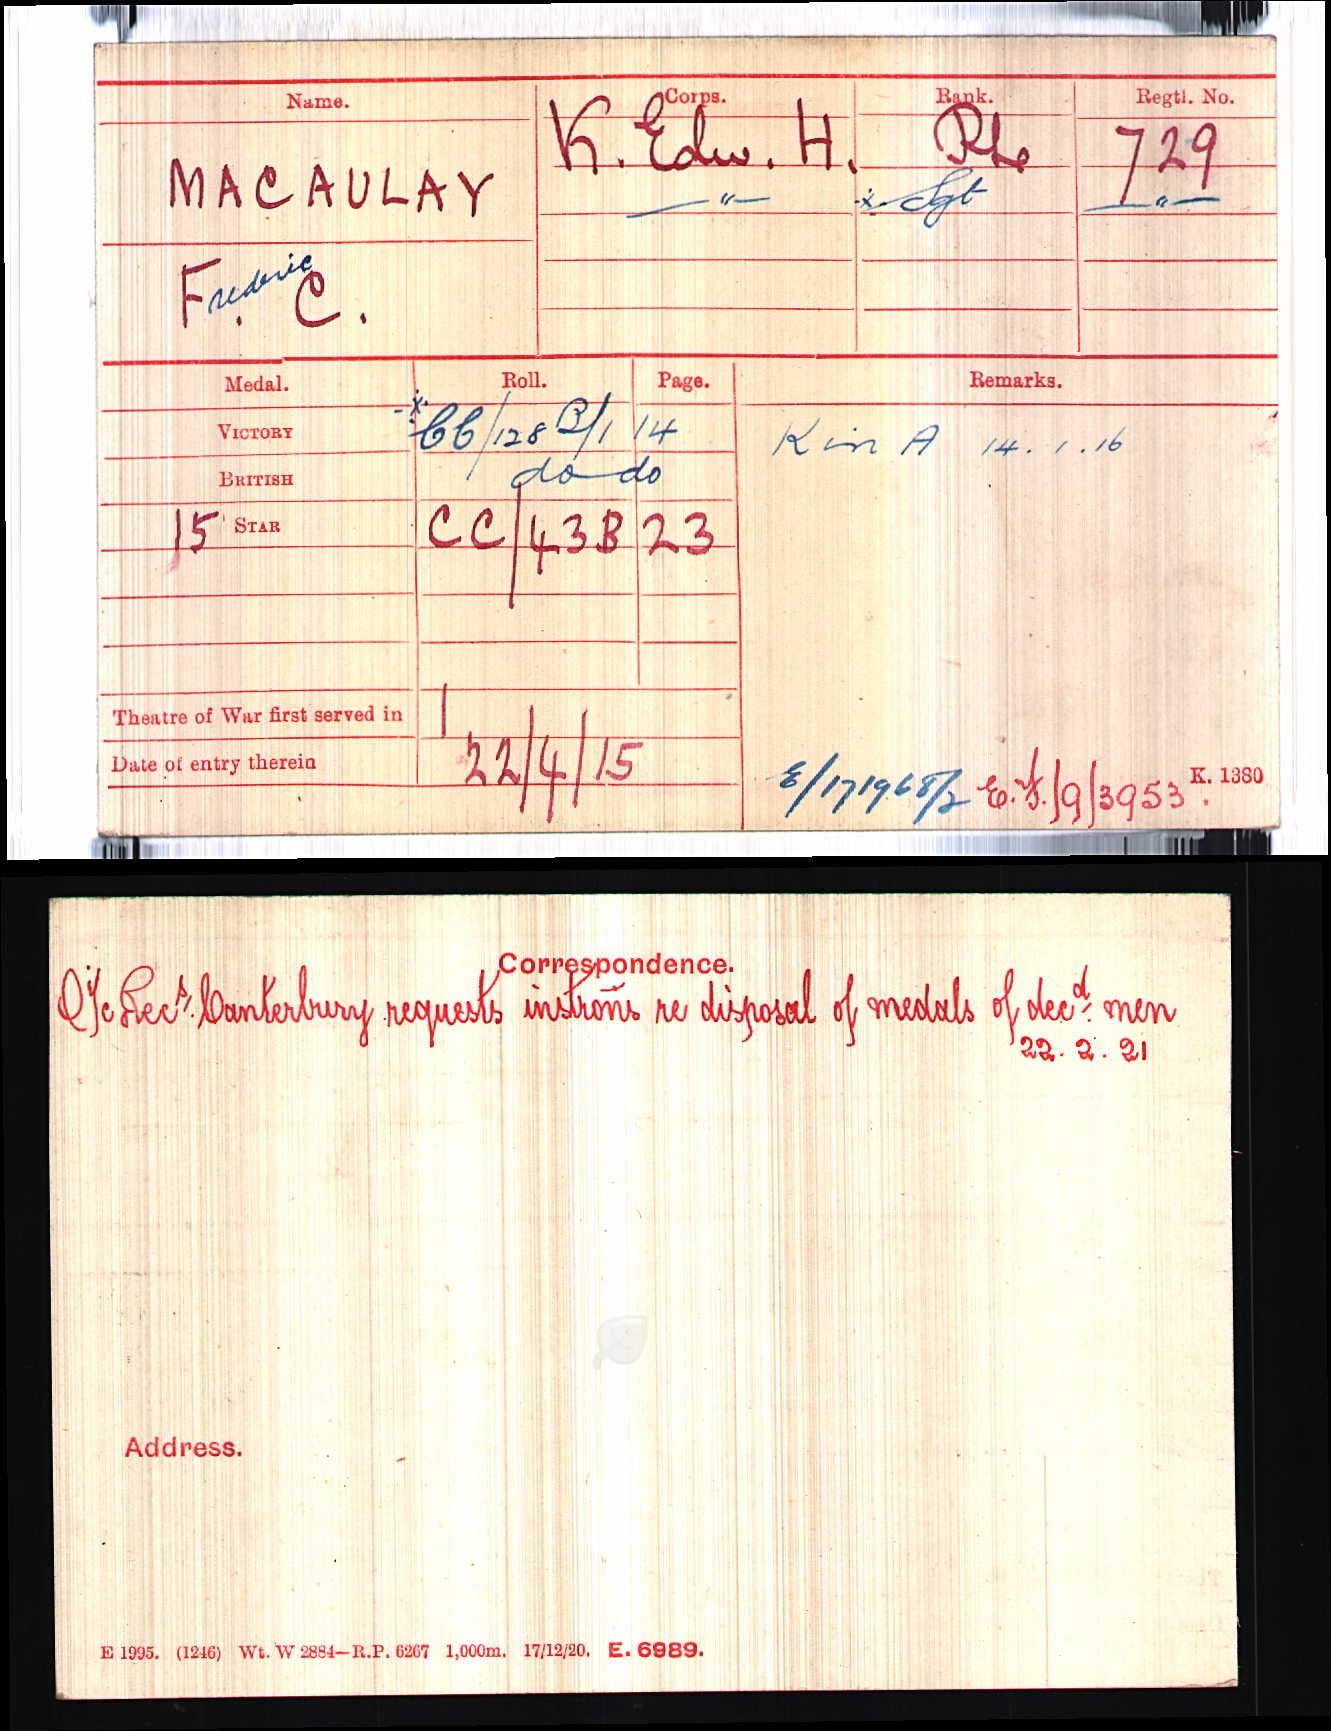 Name. Corps. Rank. Regtl. No.
MACAULAY K. Edw. H. Pte 729
— " — -x- Sgt — " —
Frederic C.
Medal. Roll. Page. Remarks.
VICTORY -x- CC/128 B/1 14 K in A 14.1.16
BRITISH do do
15 STAR CC/43B 23
Theatre of War first served in 1
Date of entry therein 22/4/15
E/171968/2 E.F./9/3953. K. 1380
Correspondence.
O i/c Recds. Canterbury requests instrons re disposal of medals of decd. men
22.2.21
Address.
E 1995. (1246) Wt. W 2884—R.P. 6267 1,000m. 17/12/20. E. 6989.